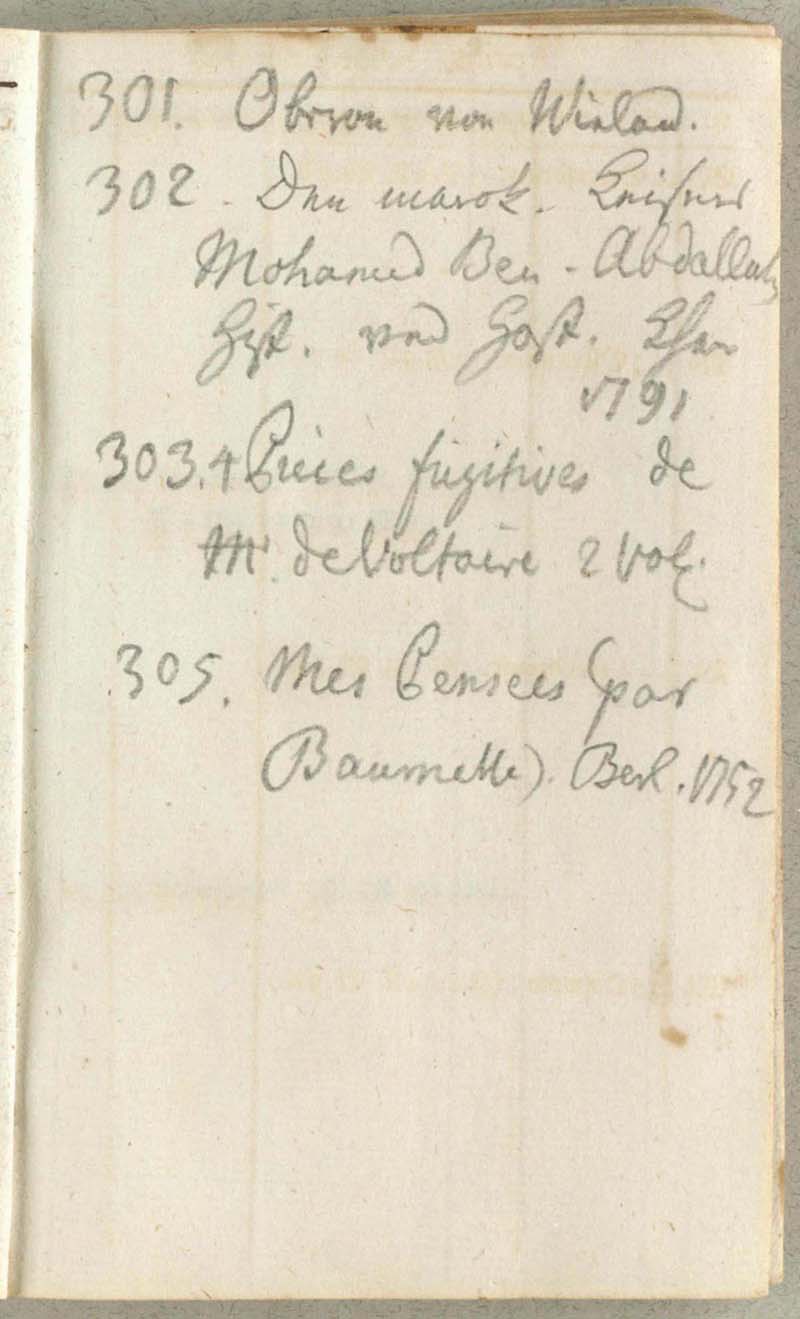 301. Oberon von Wieland.
302. Den marok. Keisers
Mohamed Ben-Abdallahs
Hist. ved Høst. Khvn
1791
303.4 Pieces fugitives de
Mr. de Voltaire 2 Vol.
305. Mes Pensees (par
Baumelle). Berl. 1752